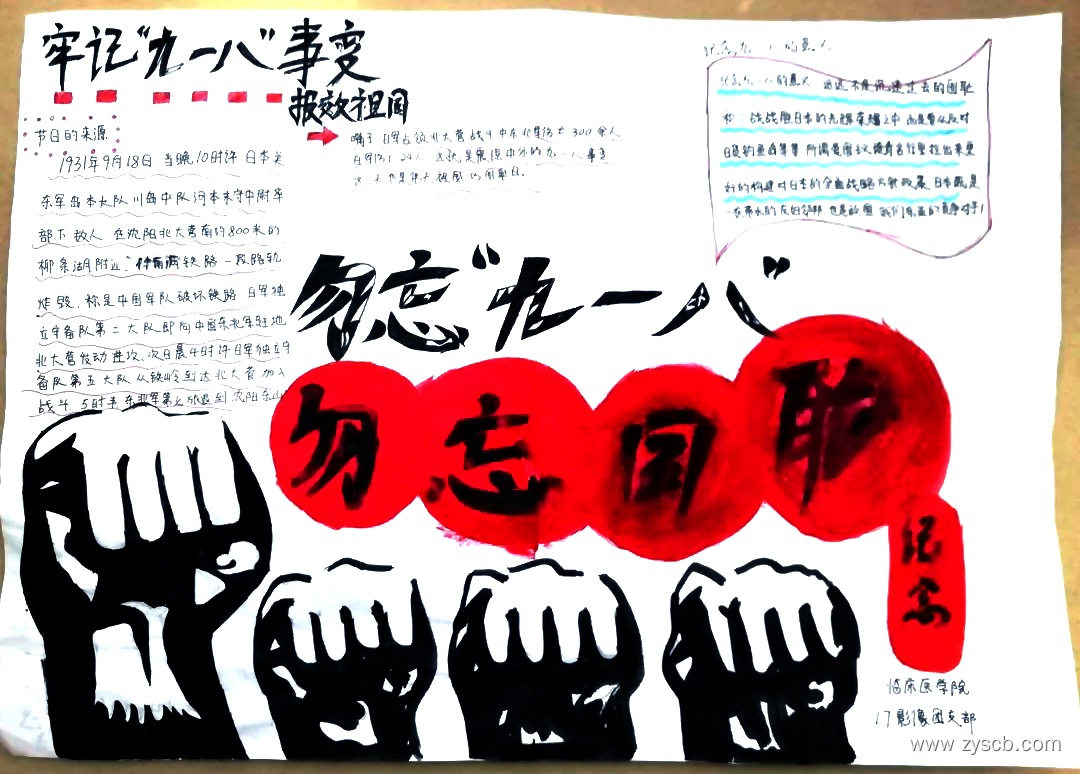 牢记“九一八”事变
报效祖国
节日的来源
1931年9月18日 当晚10时许 日本关
东军岛本大队川岛中队河本末守中尉率
部下数人 在沈阳北大营南约800米的
柳条湖附近 将南满铁路一段路轨
炸毁 称是中国军队破坏铁路 日军独
立守备队第二大队即向中国东北军驻地
北大营发动进攻 次日晨4时许日军独立守
备队第五大队从铁岭到达北大营加入
战斗 5时半 东北军第七旅退到沈阳东山
日军占领北大营 战斗中东北军伤亡300余人
日军伤亡24人 这就是震惊中外的九一八事变
纪念九一八的意义
纪念九一八的意义 远远不是沉迷过去的国耻
和 战战胜日本的光辉荣耀之中
日货钓鱼岛等等 所谓爱国主义
好的构建对日本的全面战略方针政策 日本既是
一衣带水的友好邻邦 也是
勿忘“九一八”
勿忘国耻
纪念
临床医学院
17影像团支部
www.zyscb.com